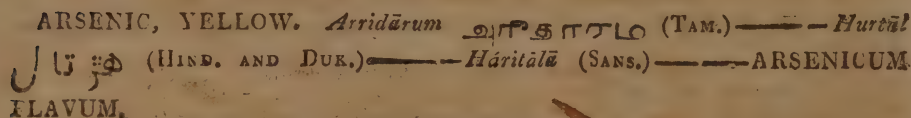 ARSENIC, YELLOW. Arridārum அரிதாரம (TAM.)——— - Hurtāl
هرتال (HIND. AND DUK.)——— - Háritālā (SANS.)——— - ARSENICUM
FLAVUM.